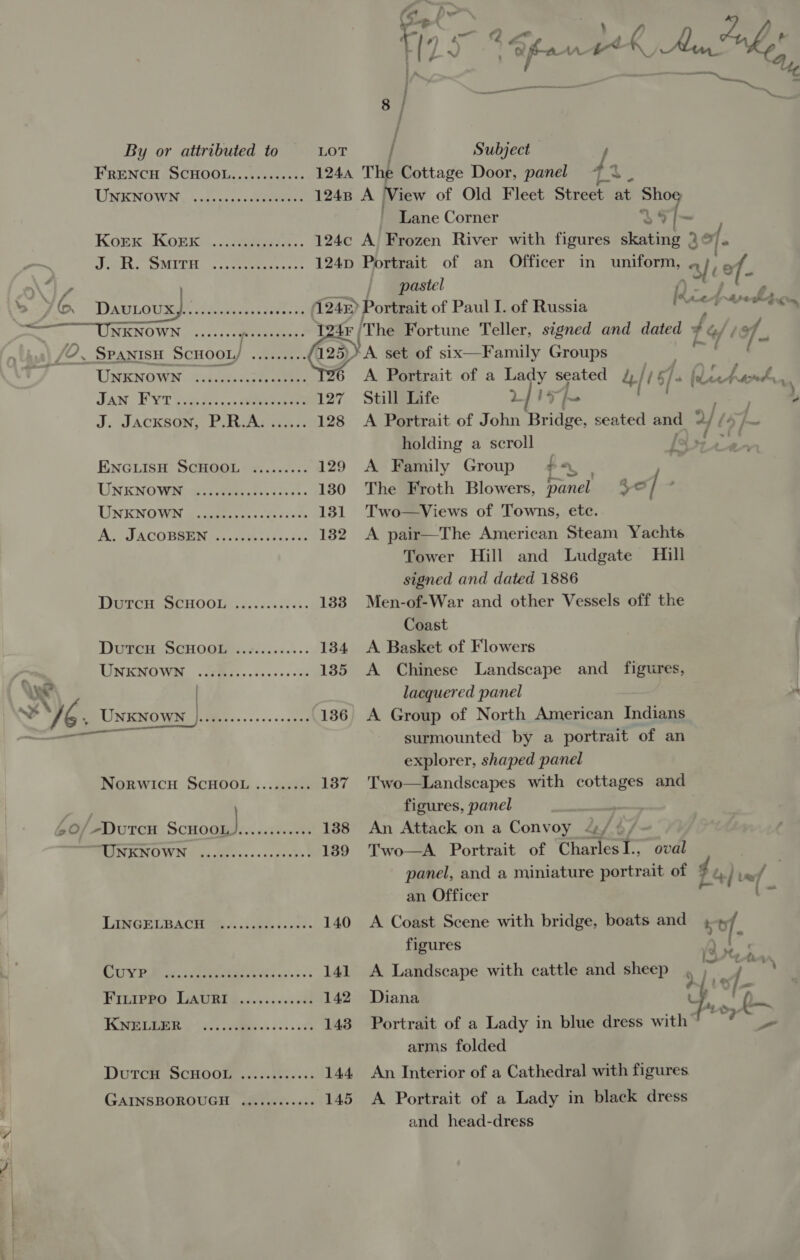 8
By or attributed to LOT Subject
FRENCH SCHOOL............ 124A The Cottage Door, panel
UNKNOWN .................. 124B A View of Old Fleet Street at Shoe
Lane Corner
KOEK KOEK ............... 124C A Frozen River with figures skating
J. R. SMITH ............... 124D Portrait of an Officer in uniform,
pastel
DAULOUX.................. 124E Portrait of Paul I. of Russia
UNKNOWN .................. 124F The Fortune Teller, signed and dated
SPANISH SCHOOL ......... 125 A set of six—Family Groups
UNKNOWN .................. 126 A Portrait of a Lady seated
JAN FYT .................. 127 Still Life
J. JACKSON, P.R.A. ...... 128 A Portrait of John Bridge, seated and
holding a scroll
ENGLISH SCHOOL ......... 129 A Family Group
UNKNOWN .................. 130 The Froth Blowers, panel 30/-
UNKNOWN .................. 131 Two—Views of Towns, etc.
A. JACOBSEN ............... 132 A pair—The American Steam Yachts
Tower Hill and Ludgate Hill
signed and dated 1886
DUTCH SCHOOL ............ 133 Men-of-War and other Vessels off the
Coast
DUTCH SCHOOL ............ 134 A Basket of Flowers
UNKNOWN .................. 135 A Chinese Landscape and figures,
lacquered panel
UNKNOWN .................. 136 A Group of North American Indians
surmounted by a portrait of an
explorer, shaped panel
NORWICH SCHOOL ......... 137 Two—Landscapes with cottages and
figures, panel
60/- DUTCH SCHOOL............ 138 An Attack on a Convoy
UNKNOWN .................. 139 Two—A Portrait of Charles I., oval
panel, and a miniature portrait of
an Officer
LINGELBACH ............... 140 A Coast Scene with bridge, boats and
figures
CUYP ..................... 141 A Landscape with cattle and sheep
FILIPPO LAURI ............ 142 Diana
KNELLER .................. 143 Portrait of a Lady in blue dress with
arms folded
DUTCH SCHOOL ............ 144 An Interior of a Cathedral with figures
GAINSBOROUGH ............ 145 A Portrait of a Lady in black dress
and head-dress